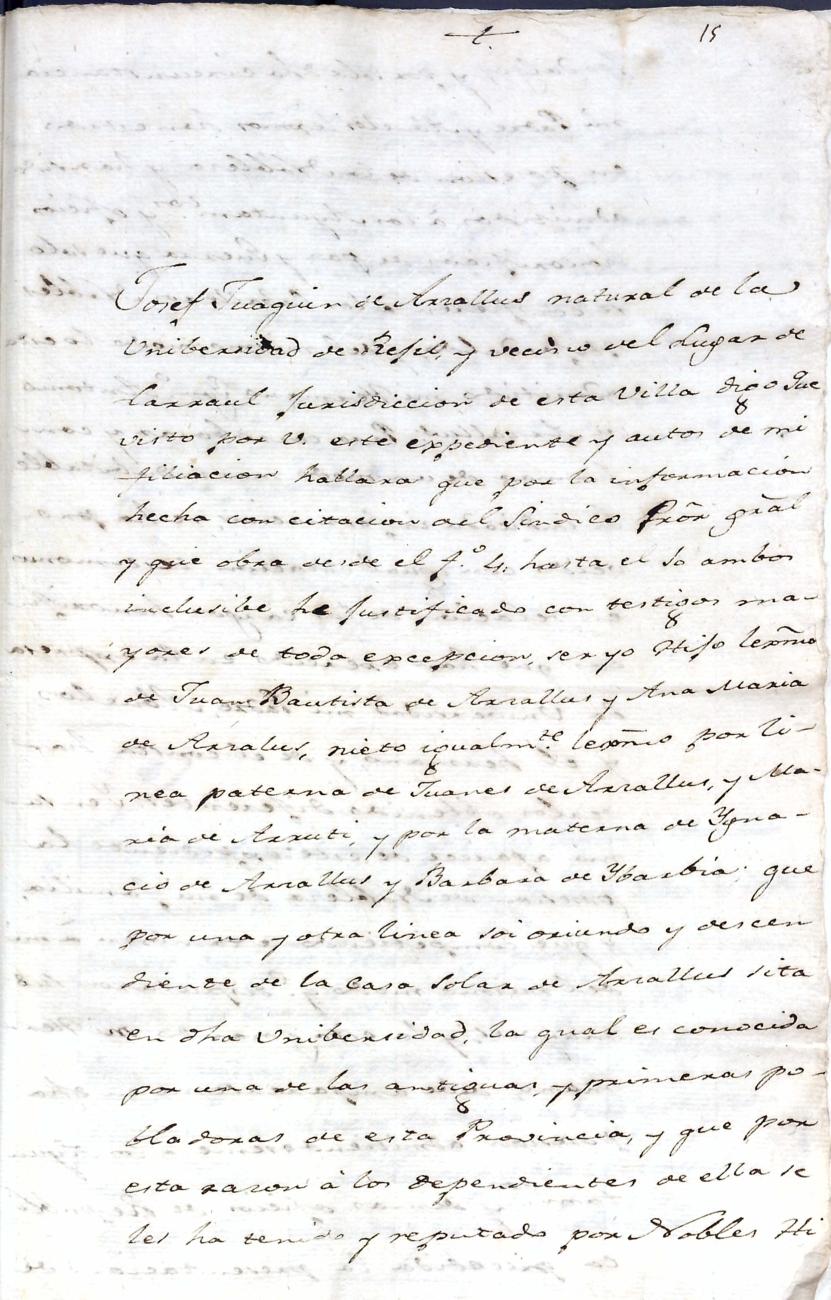 t. 15
Josef Juaquin de Arrallus natural de la
Unibersidad de Resil, y vecino del Lugar de
Larraul Jurisdiccion de esta Villa digo que
visto por V. este expediente y autos de mi
filiacion hallara que por la informacion
hecha con citacion del Sindico Prõr grãl
y que obra desde el f.º 4, hasta el 10 ambos
inclusibe he Justificado con testigos ma-
yores de toda excepcion, ser yo Hijo lexmo
de Juan Bautista de Arrallus y Ana Maria
de Arralus, nieto igualm.te lexmo por li-
nea paterna de Juanes de Arrallus, y Ma-
ria de Arruti, y por la materna de Ygna-
cio de Arrallus y Barbara de Ybarbia: que
por una y otra linea soi oriundo y descen
diente de la Casa Solar de Arrallus sita
en dha Unibersidad, la qual es conocida
por una de las antiguas, y primeras po-
bladoras de esta Provincia, y que por
esta razon à los dependientes de ella se
les ha tenido y reputado por Nobles Hi